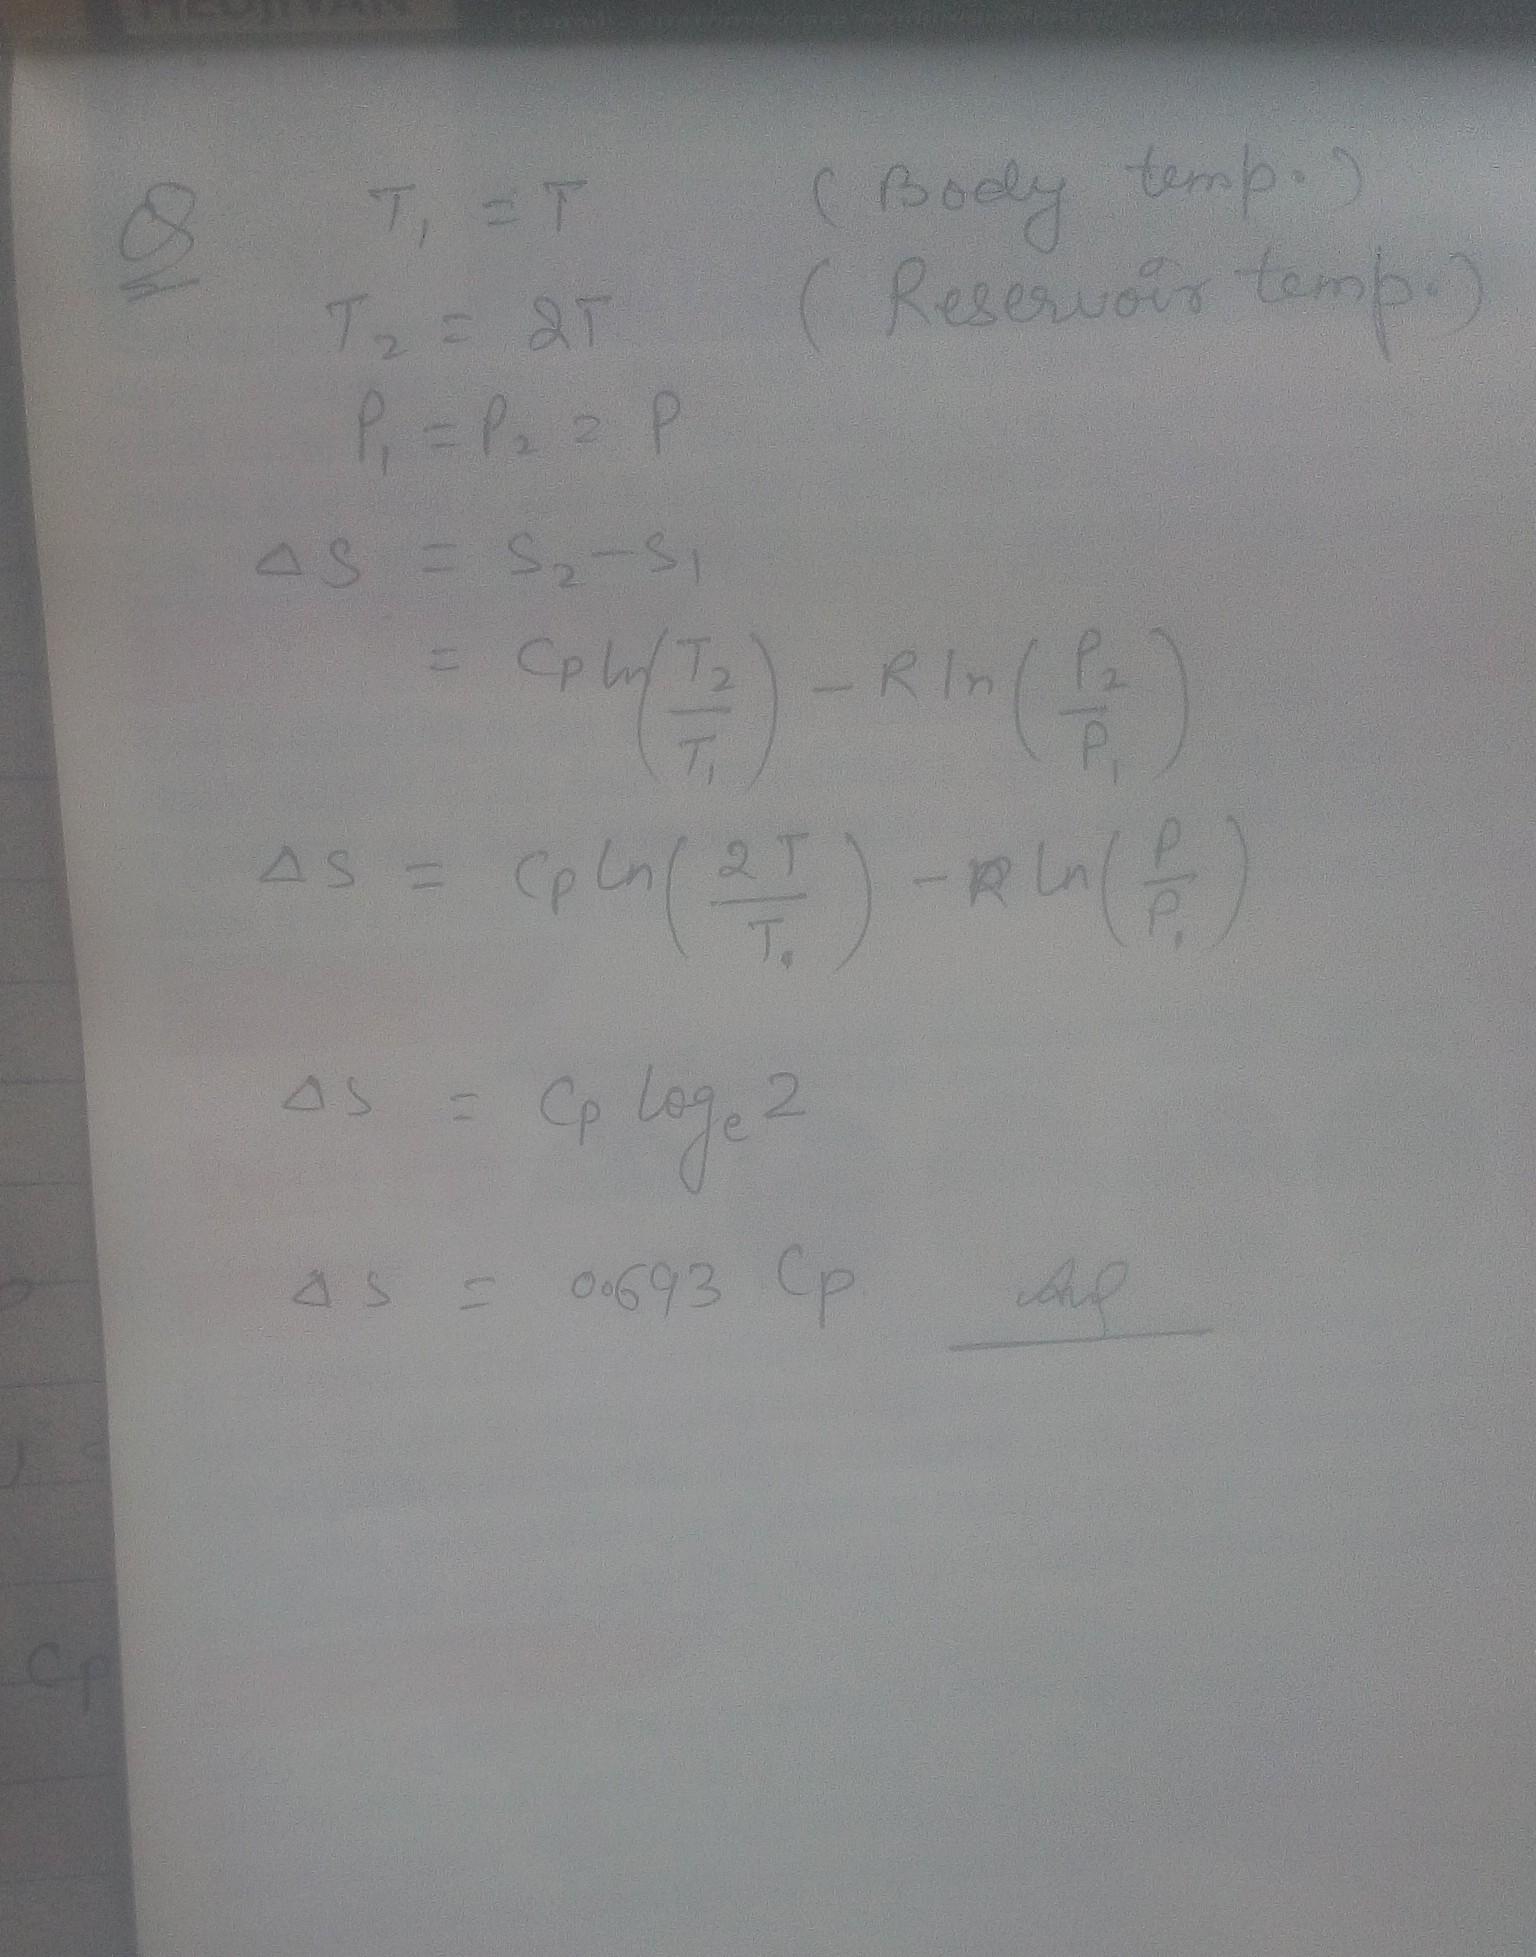 Q T₁ = T ( Body temp. )
T₂ = 2T ( Reservoir temp. )
P₁ = P₂ = P
ΔS = S₂ - S₁
= Cp ln(T₂/T₁) - R ln(P₂/P₁)
ΔS = Cp ln(2T/T) - R ln(P/P)
ΔS = Cp logₑ 2
ΔS = 0.693 Cp
Cp